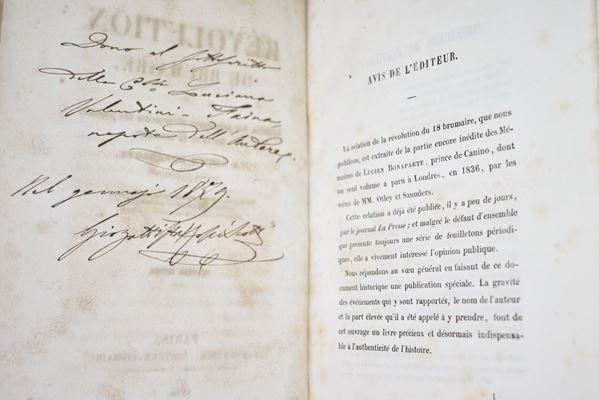 Dono al sottoscritto
della Cssa Luciana
Valentini - Faina
nepote dell'Autore
Nel gennajo 1879.
AVIS DE L'ÉDITEUR.
La relation de la révolution du 18 brumaire, que nous
publions, est extraite de la partie encore inédite des Mé-
moires de LUCIEN BONAPARTE, prince de Canino, dont
un seul volume a paru à Londres, en 1836, par les
soins de MM. Otley et Saunders.
Cette relation a déjà été publiée, il y a peu de jours,
par le journal La Presse; et malgré le défaut d'ensemble
que présente toujours une série de feuilletons périodi-
ques, elle a vivement intéressé l'opinion publique.
Nous répondons au vœu général en faisant de ce do-
cument historique une publication spéciale. La gravité
des événements qui y sont rapportés, le nom de l'auteur
et la part élevée qu'il a été appelé à y prendre, font de
cet ouvrage un livre précieux et désormais indispensa-
ble à l'authenticité de l'histoire.
1